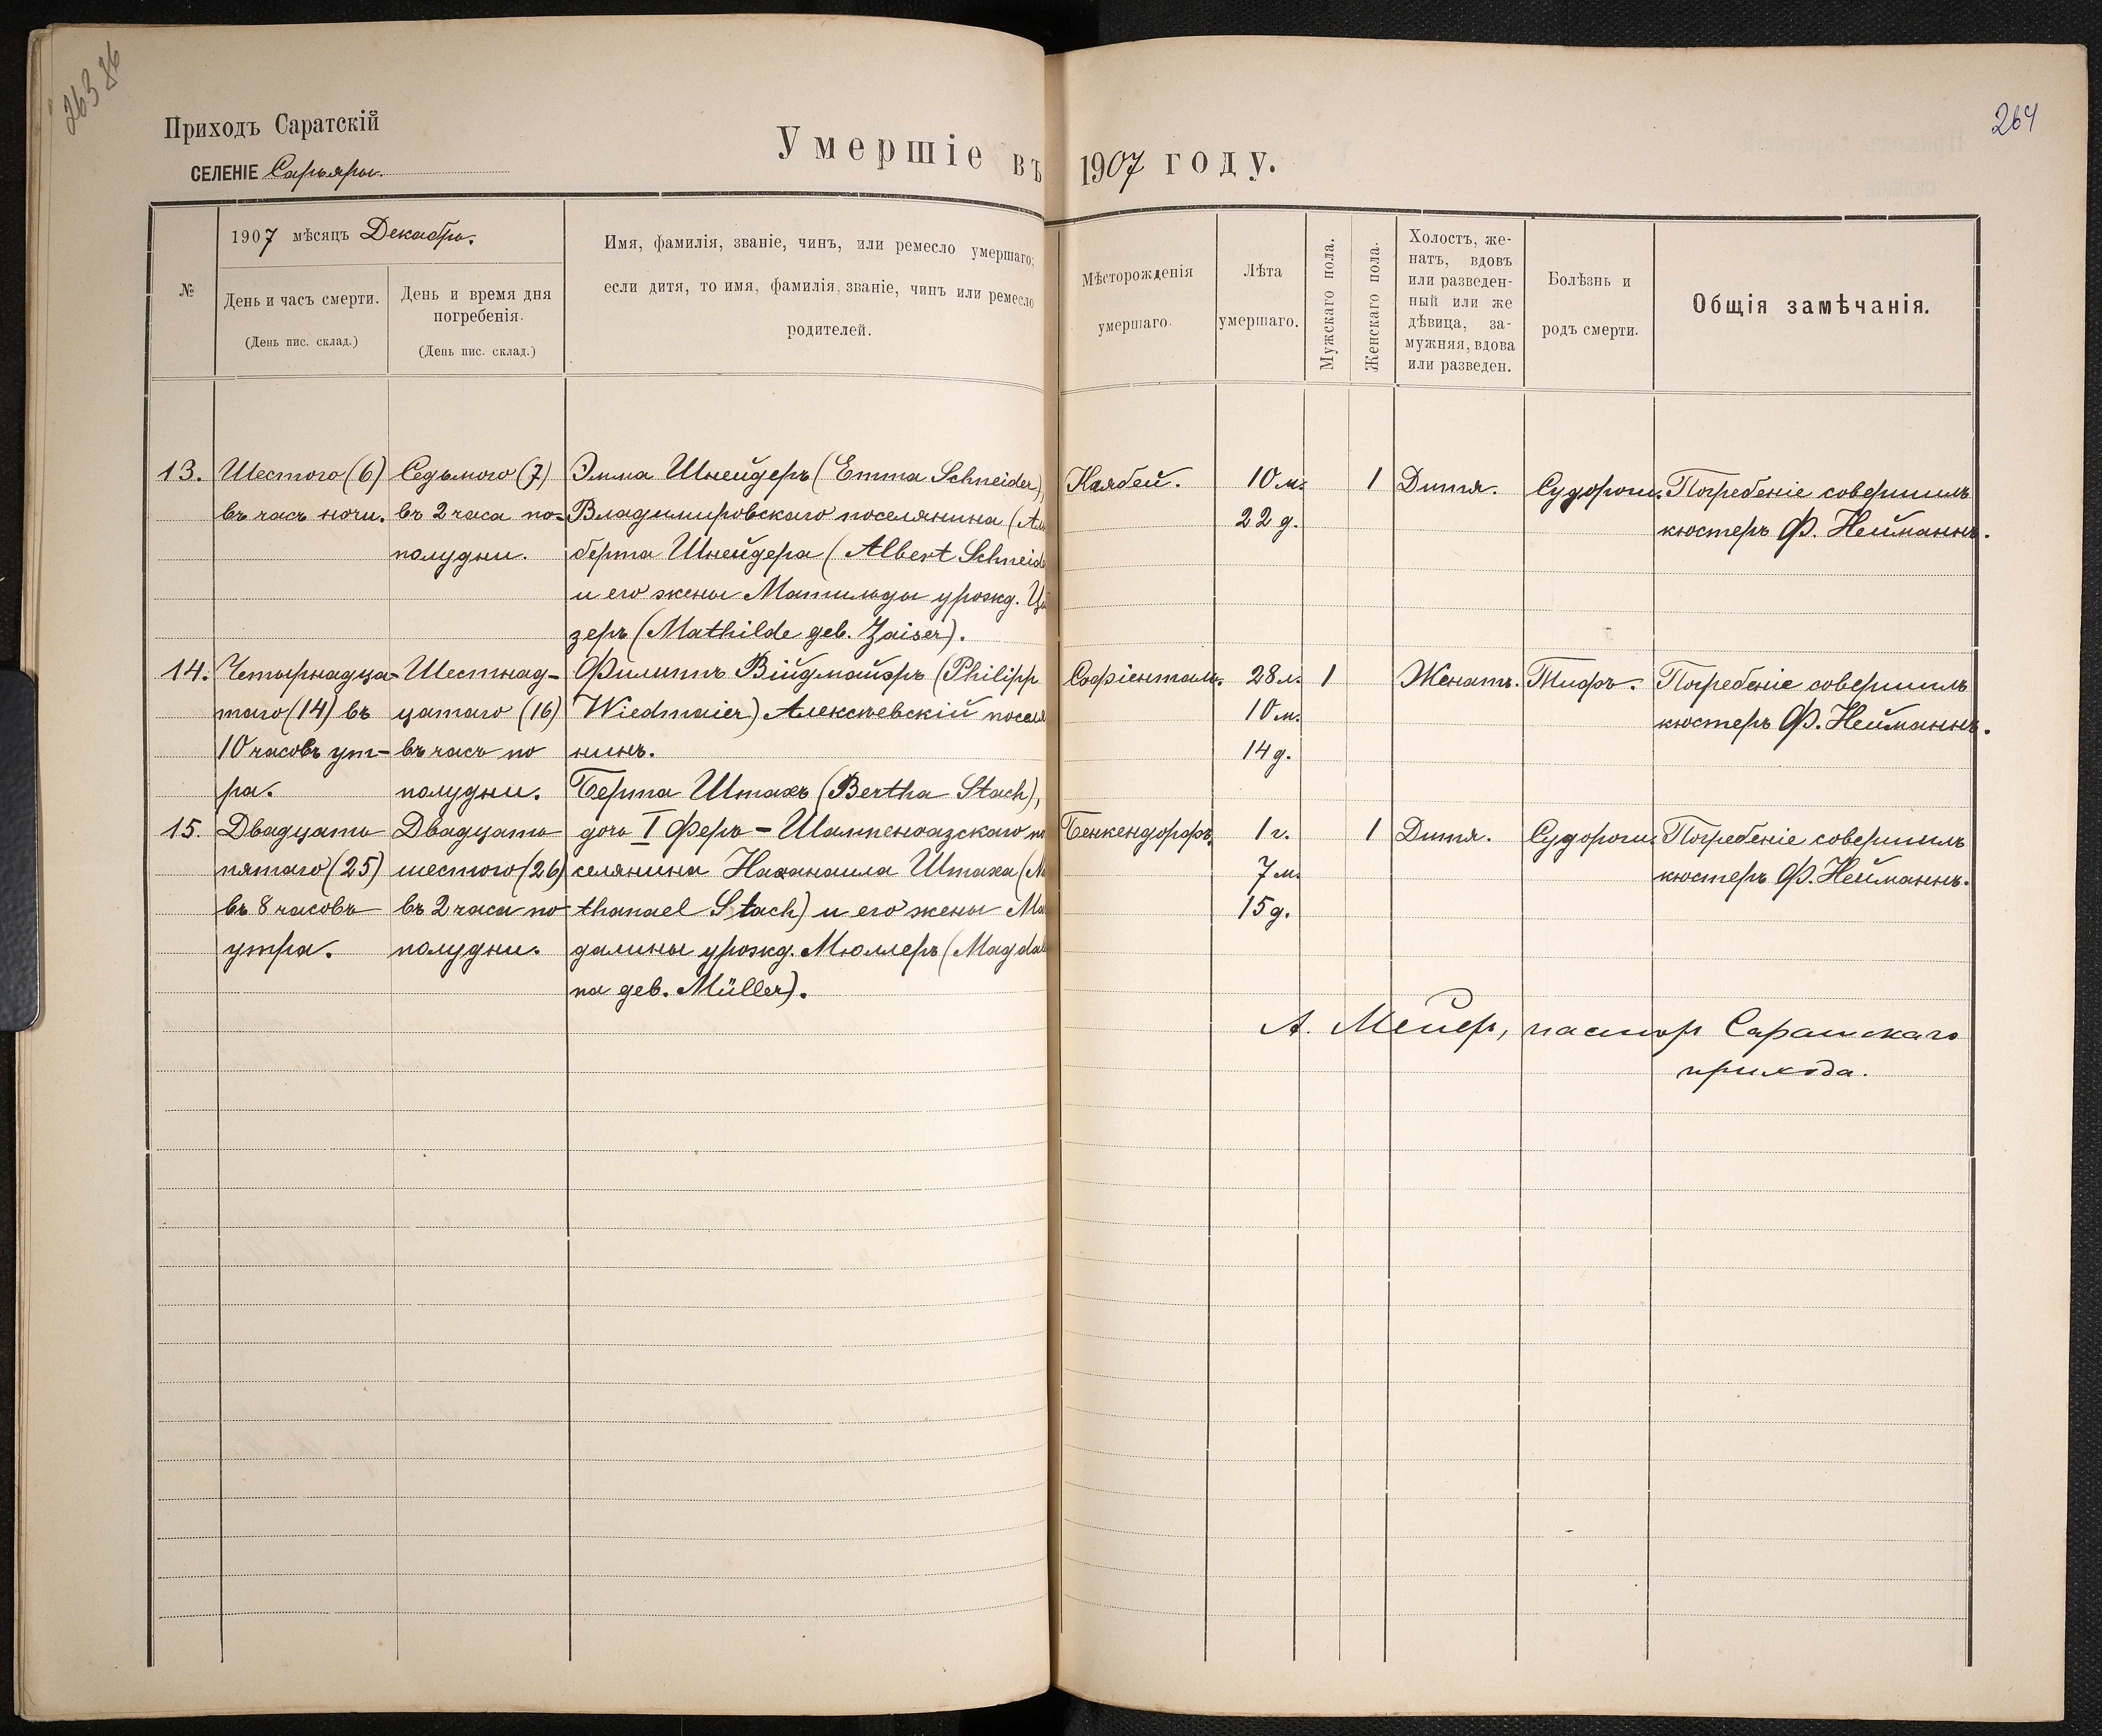 263 86
264
Приходъ Саратскій
СЕЛЕНІЕ Сарьяры.
Умершіе въ 1907 году.
№
1907 мѣсяцъ Декабрь.
День и часъ смерти.
(День пис. склад.)
День и время дня
погребенія.
(День пис. склад.)
Имя, фамилія, званіе, чинъ, или ремесло умершаго;
если дитя, то имя, фамилія, званіе, чинъ или ремесло
родителей.
Мѣсторожденія
умершаго.
Лѣта
умершаго.
Мужскаго пола.
Женскаго пола.
Холостъ, же-
натъ, вдовъ
или разведен-
ный или же
дѣвица, за-
мужняя, вдова
или разведен.
Болѣзнь и
родъ смерти.
Общія замѣчанія.
13.
Шестого (6)
въ часъ ночи.
Седьмого (7)
въ 2 часа по-
полудни.
Эмма Шнейдеръ (Emma Schneider),
Владимировскаго поселянина (Аль
берта Шнейдера (Albert Schneide
и его жены Матильды урожд. Ца
зеръ (Mathilde geb. Zaiser).
Каябей.
10 м.
22 д.
1
Дитя.
Судороги.
Погребеніе совершилъ
кюстеръ Ф. Нейманнъ.
14.
Четырнадца-
таго (14) въ
10 часовъ ут-
ра.
Шестнад-
цатаго (16)
въ часъ по
полудни.
Филиппъ Війдмайэръ (Philipp
Wiedmaier) Алексѣевскій поселя
нинъ.
Софіенталь.
28 л.
10 м.
14 д.
1
Женатъ.
Тифъ.
Погребеніе совершилъ
кюстеръ Ф. Нейманнъ.
15.
Двадцать
пятаго (25)
въ 8 часовъ
утра.
Двадцать
шестого (26)
въ 2 часа по
полудни.
Берта Штахъ (Bertha Stach),
дочь I Феръ-Шампенуазскаго по
селянина Наѳанаила Штаха (Na
thanael Stach) и его жены Ма
далины урожд. Мюллеръ (Magdale
na geb. Müller).
Бенкендорфъ.
1 г.
7 м.
15 д.
1
Дитя.
Судороги.
Погребеніе совершилъ
кюстеръ Ф. Нейманнъ.
А. Мейер, пастор Саратскаго
прихода.